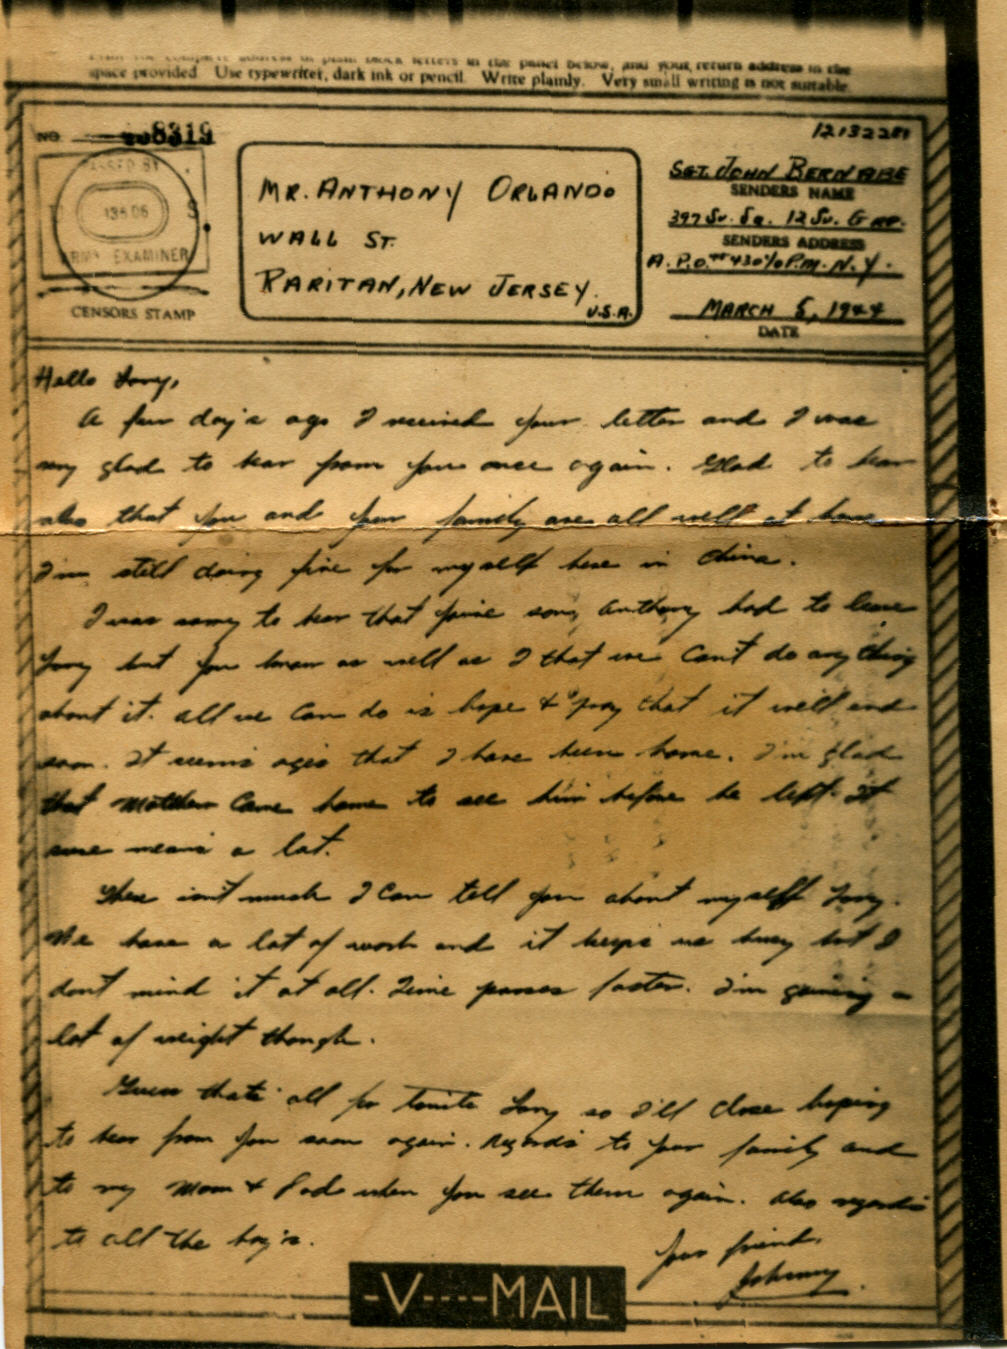 space provided. Use typewriter, dark ink or pencil. Write plainly. Very small writing is not suitable.
No. 8319
PASSED BY
ARMY EXAMINER
CENSORS STAMP
MR. ANTHONY ORLANDO
WALL ST.
RARITAN, NEW JERSEY.
U.S.A.
12132281
SGT. JOHN BERNABE
SENDERS NAME
397 Sv. Sq. 12 Sv. GRP.
SENDERS ADDRESS
A.P.O. #430 % P.M. N.Y.
MARCH 5, 1944
DATE
Hello Tony,
A few day's ago I received your letter and I was
very glad to hear from you once again. Glad to hear
also that you and your family are all well at home.
I'm still doing fine for myself here in China.
I was sorry to hear that your son, Anthony had to leave
Tony but you know as well as I that we can't do anything
about it. All we can do is hope & pray that it will end
soon. It seems ages that I have been home. I'm glad
that Matthew came home to see him before he left. It
sure means a lot.
There isn't much I can tell you about myself Tony.
We have a lot of work and it keeps us busy but I
don't mind it at all. Time passes faster. I'm gaining a
lot of weight though.
Guess that's all for tonite Tony so I'll close hoping
to hear from you soon again. Regards to your family and
to my Mom & Dad when you see them again. Also regards
to all the boy's.
Your friend,
Johnny.
-V----MAIL